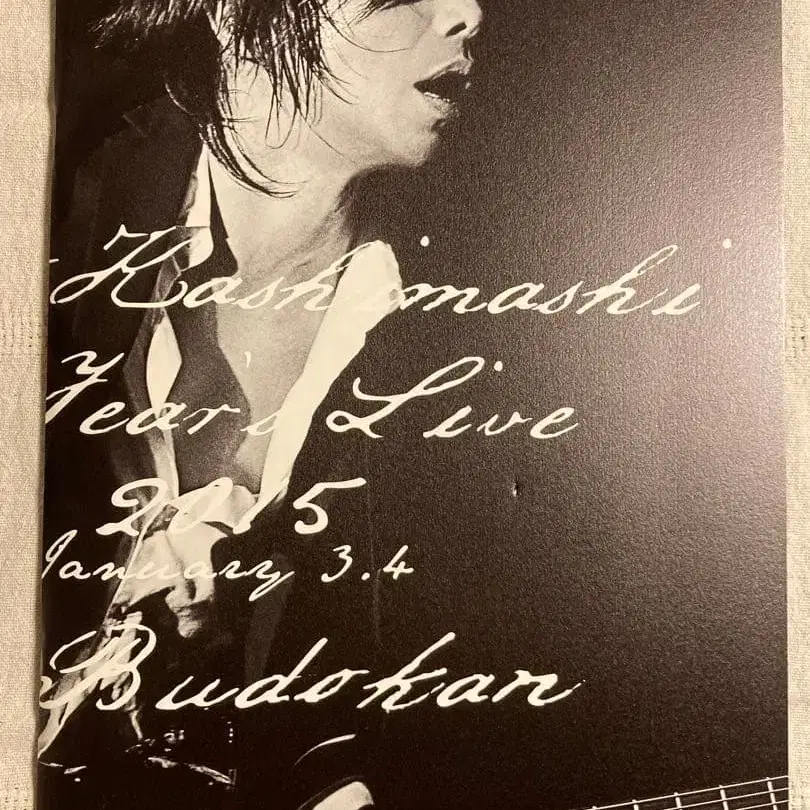 Kashimashi
Year's Live
2015
January 3.4
Budokan